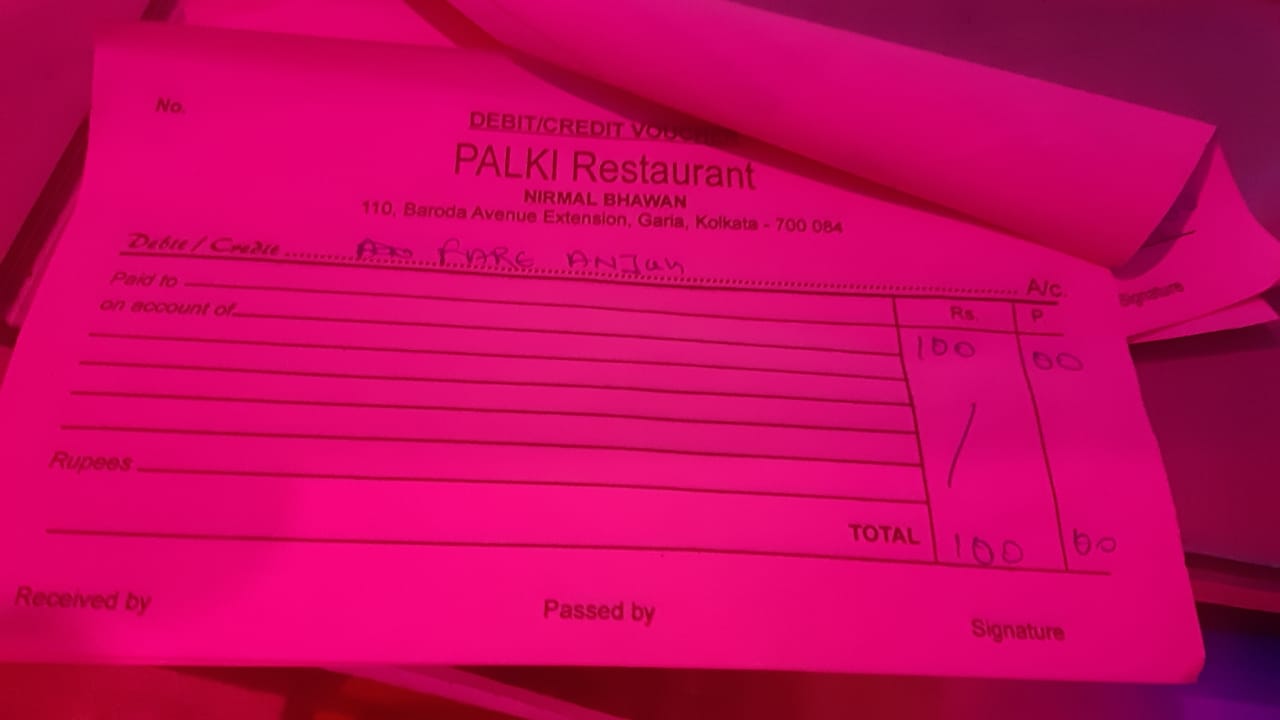 No.
DEBIT/CREDIT VOUCHER
PALKI Restaurant
NIRMAL BHAWAN
110, Baroda Avenue Extension, Garia, Kolkata - 700 084
Debit / Credit FARE ANJAN A/c.
Paid to
on account of
Rs. P.
100 00
Rupees
TOTAL 100 00
Received by Passed by Signature
Signature